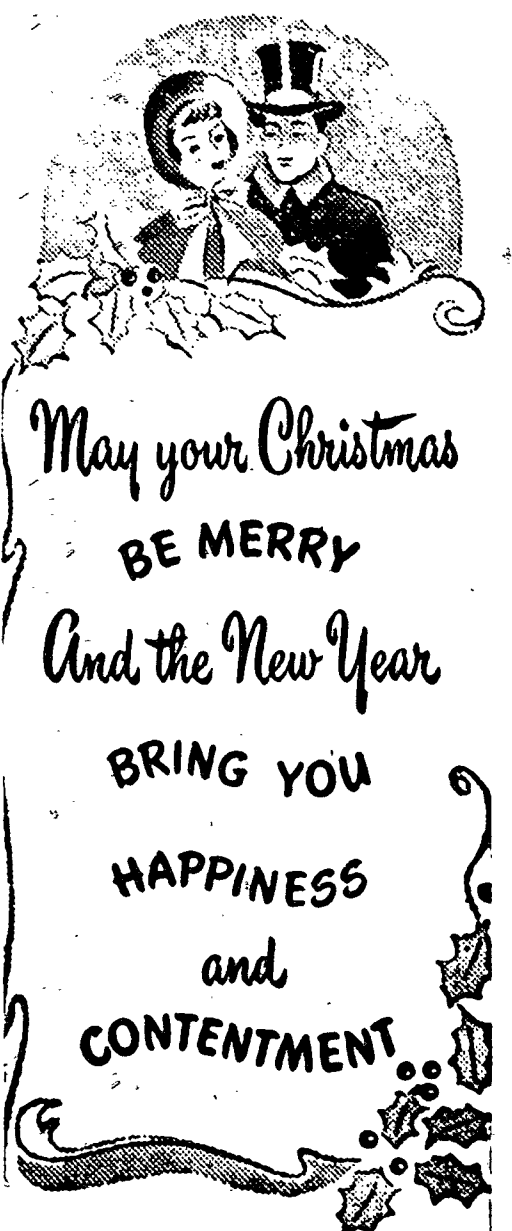 May your Christmas
BE MERRY
And the New Year
BRING YOU
HAPPINESS
and
CONTENTMENT